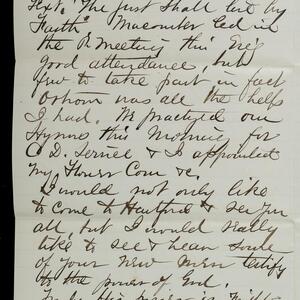 Text "The just shall live by
Faith" Macomber led in
the P. Meeting this Eve'g
good attendance, but
few to take part in fact
Osborn was all the help
I had. We practized our
Hymns this Morning for
C. D. Service & I appointed
my Flower Com &c.
I would not only like
to come to Hartford & see you
all, but I would really
like to see & hear some
of your new men testify
to the power of God.